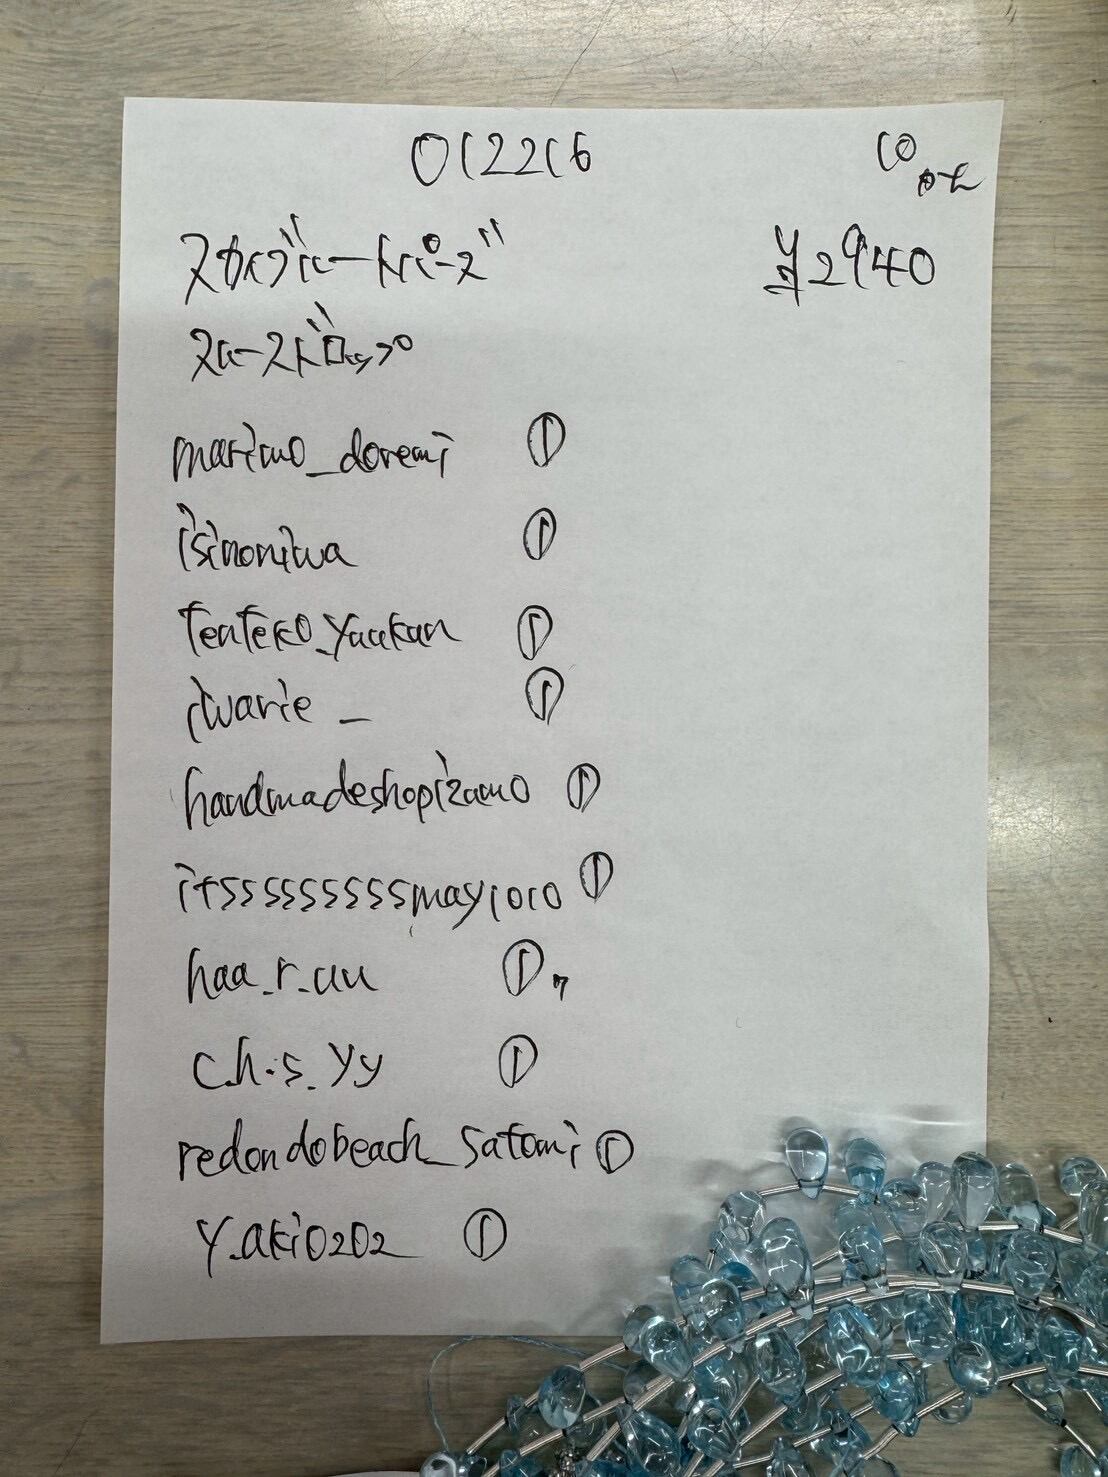 012216
10
スカイブルートパーズ
¥2940
スムースドロップ
marimo_doremi ①
isinoniwa ①
tenteko_yaakan ①
iwarie_ ①
handmadeshopizumo ①
itsssssssssmay1010 ①
haa_r_uu ①
c.h.s_yy ①
redondobeach_satomi ①
y_aki0202 ①